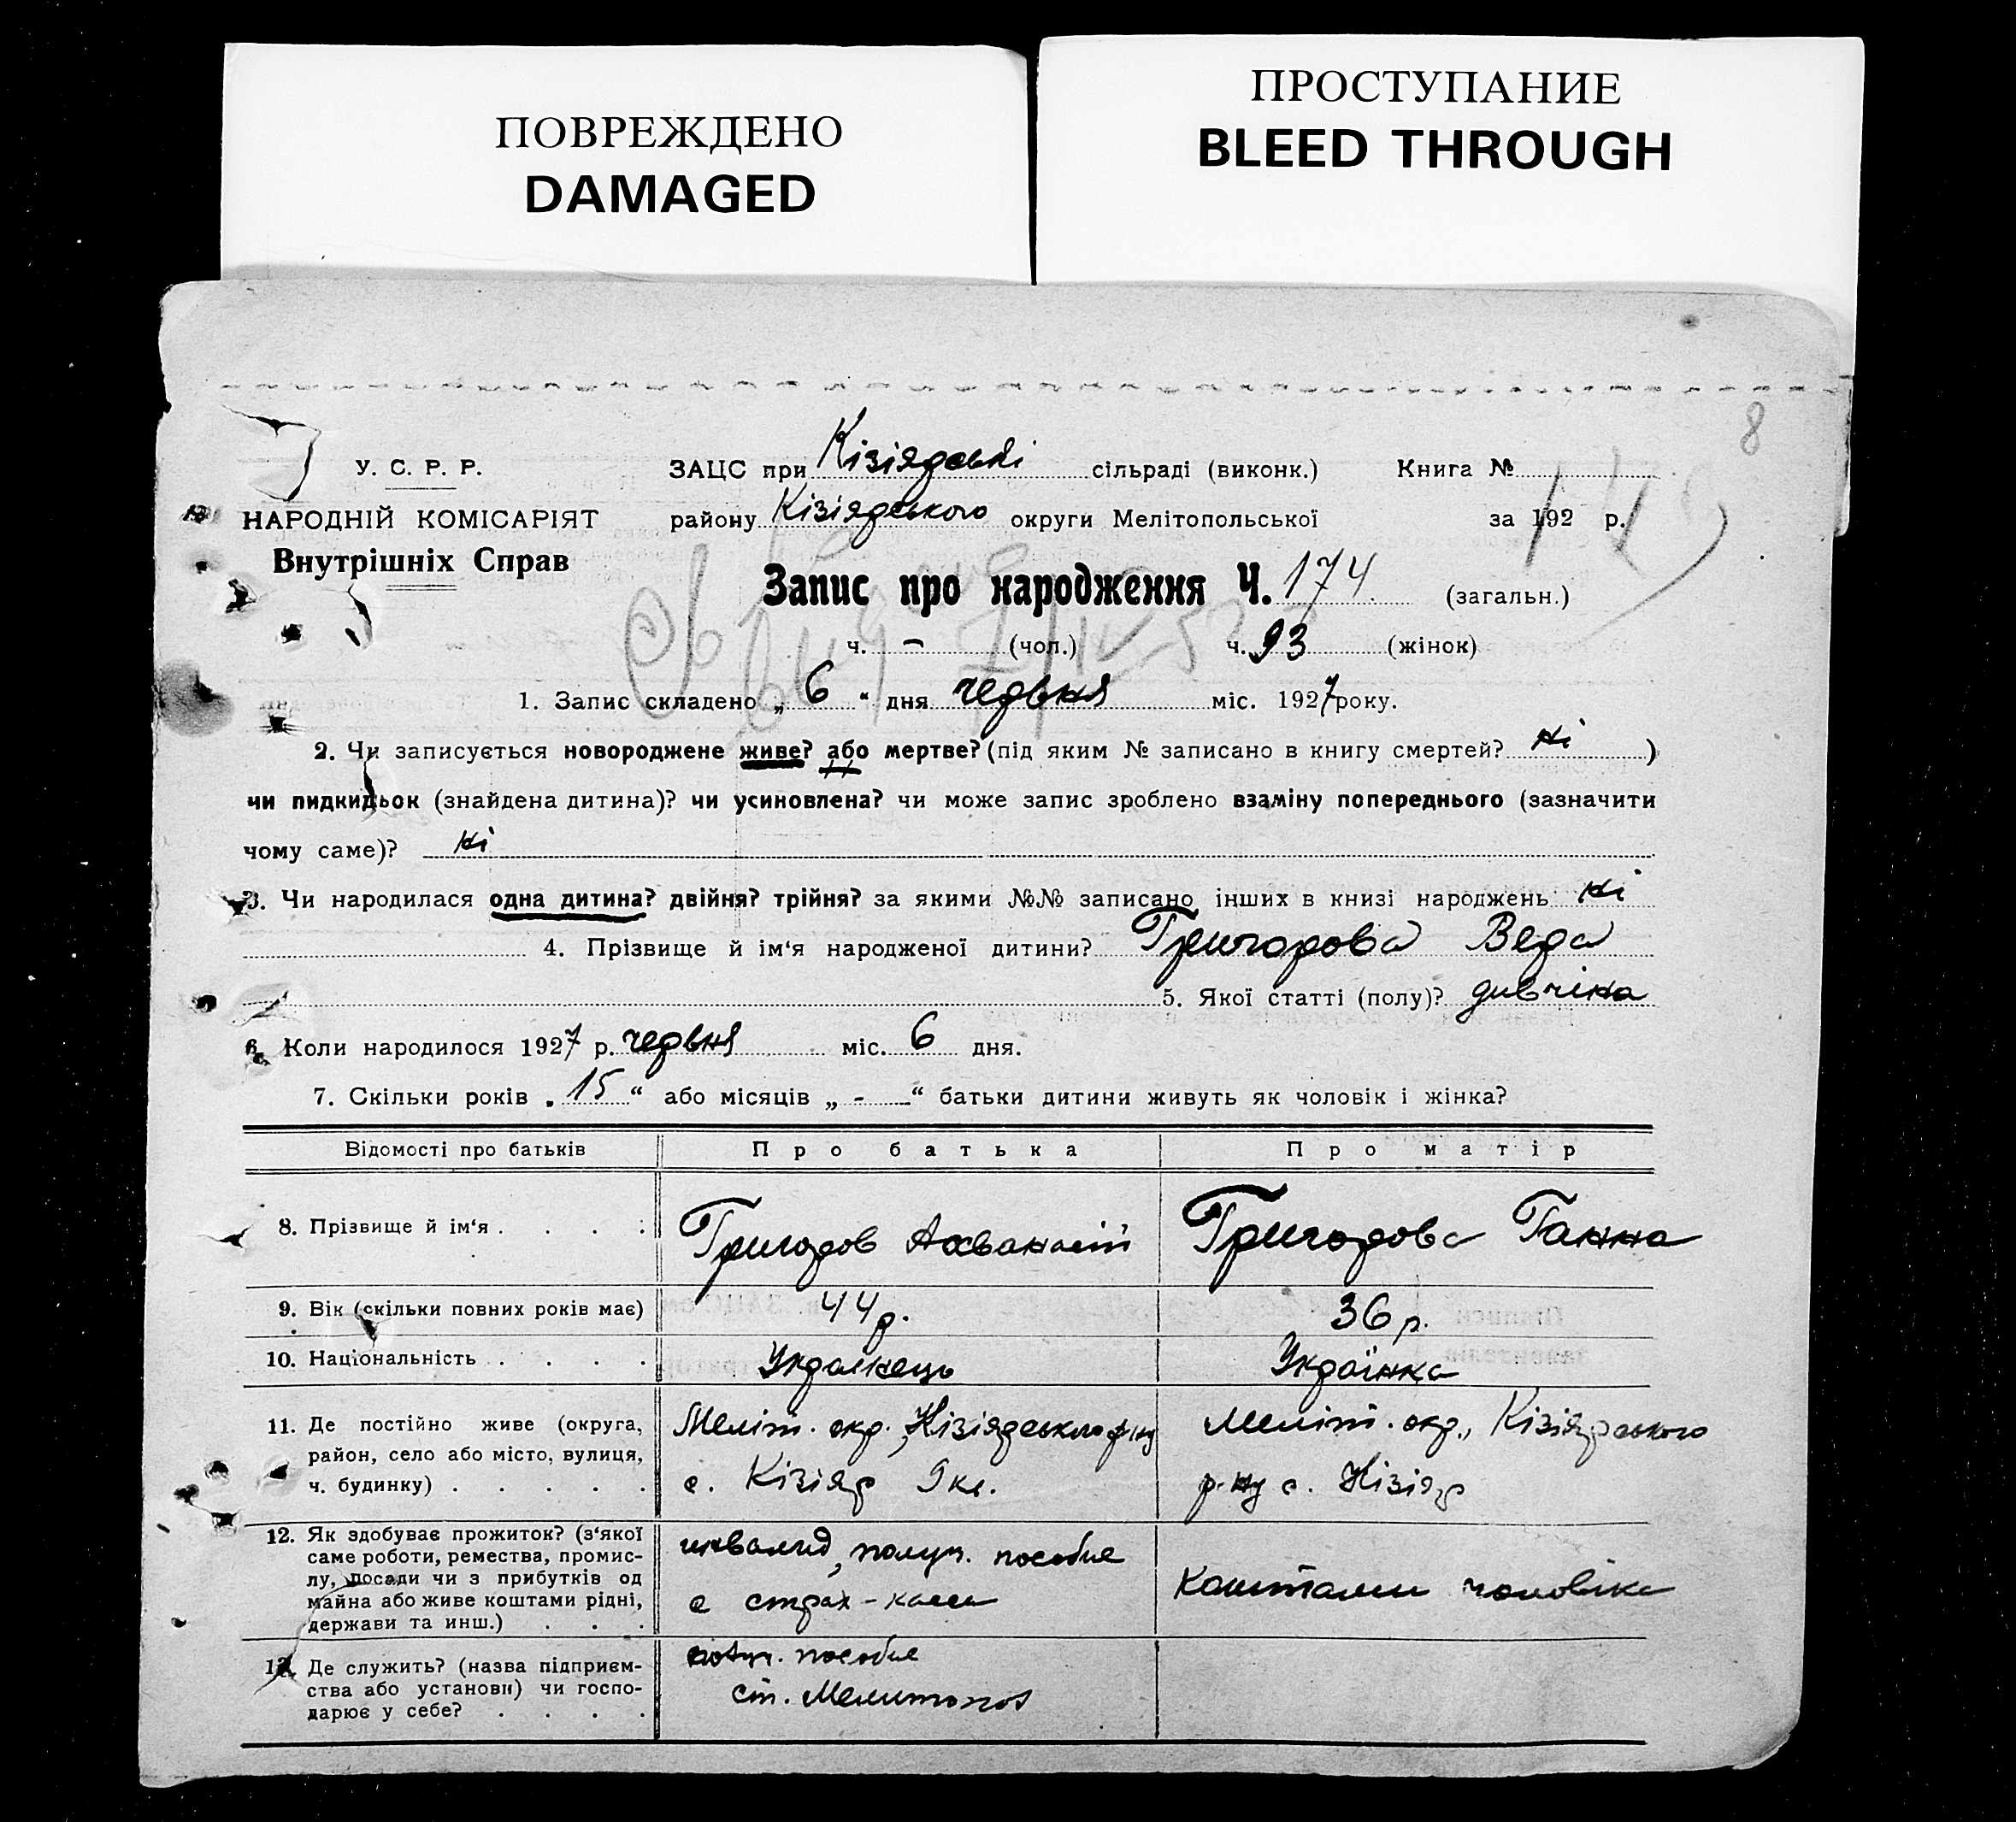 ПОВРЕЖДЕНО
DAMAGED
ПРОСТУПАНИЕ
BLEED THROUGH
8
У. С. Р. Р.
НАРОДНІЙ КОМІСАРІЯТ
Внутрішніх Справ
ЗАЦС при Кізіярські сільраді (виконк.) Книга №
району Кізіярського округи Мелітопольської за 192 р.
Запис про народження Ч. 174 (загальн.)
ч. - (чол.) ч. 93 (жінок)
1. Запис складено „ 6 “ дня червня міс. 1927 року.
2. Чи записується новороджене живе? або мертве? (під яким № записано в книгу смертей? ні )
чи пидкидьок (знайдена дитина)? чи усиновлена? чи може запис зроблено взаміну попереднього (зазначити
чому саме)? ні
3. Чи народилася одна дитина? двійня? трійня? за якими №№ записано інших в книзі народжень ні
4. Прізвище й ім‘я народженої дитини? Григорова Вера
5. Якої статті (полу)? дивчина
6. Коли народилося 1927 р. червня міс. 6 дня.
7. Скільки років „ 15 “ або місяців „ - “ батьки дитини живуть як чоловік і жінка?
Відомості про батьків Про батька Про матір
8. Прізвище й ім‘я . . . . Григоров Ахванасій Григорова Ганна
9. Вік (скільки повних років має) 44 р. 36 р.
10. Національність . . . . Украінець Украінка
11. Де постійно живе (округа, район, село або місто, вулиця, ч. будинку) . . . . .
Меліт. окр., Кізіярського р-ну
с. Кізіяр
Меліт. окр., Кізіярського
р-ну с. Кізіяр
12. Як здобуває прожиток? (з‘якої саме роботи, ремества, промислу, посади чи з прибутків од майна або живе коштами рідні, держави та инш.) . . .
инвалид, получ. пособие
с страх-касси
Коштами чоловіка
13. Де служить? (назва підприємства або установи) чи господарює у себе? . . . .
получ. пособие
ст. Мелитополь